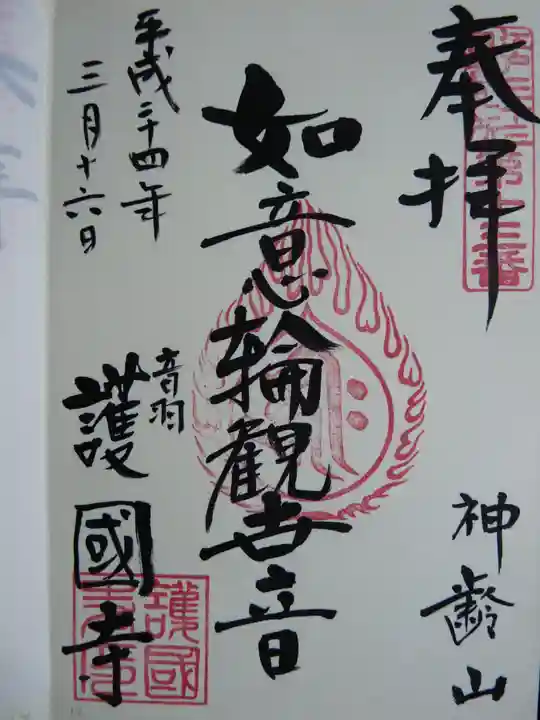 奉拝
神齢山
如意輪観世音
音羽
護國寺
平成二十四年
三月十六日